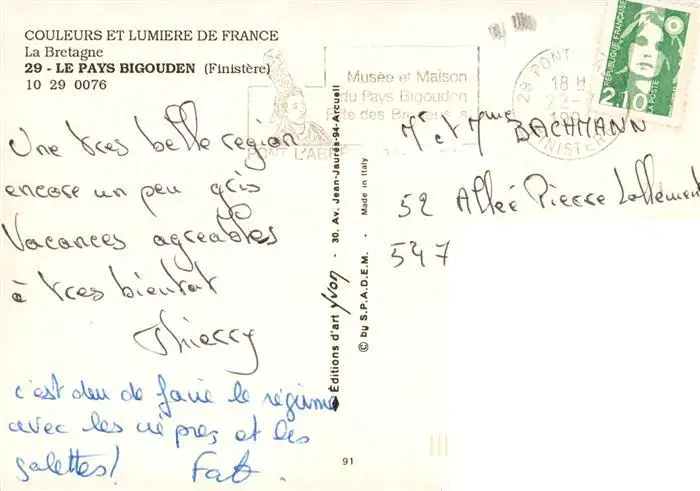 COULEURS ET LUMIERE DE FRANCE
La Bretagne
29 - LE PAYS BIGOUDEN (Finistère)
10 29 0076
Une très belle région
encore un peu gris
Vacances agréables
à très bientot
Thierry
c'est dur de faire le régime
avec les crêpes et les
galettes!
Fab.
Editions d'art yvon - 30, Av. Jean-Jaurès-94-Arcueil
© by S.P.A.D.E.M. - Made in Italy
91
Musée et Maison
du Pays Bigouden
Fête des Brodeuses
PONT L'ABBE
29 PONT
18 H
22-
FINISTERE
REPUBLIQUE FRANÇAISE
2,10
LA POSTE
Mr et Mme BACHMANN
52 Allée Pierre Lallement
547